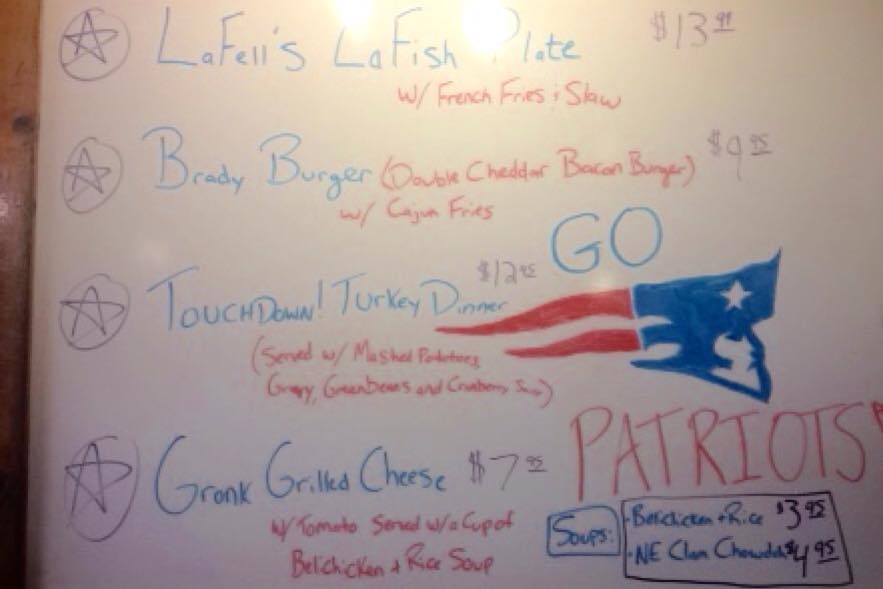 LaFell's LaFish Plate $13.99
w/ French Fries & Slaw
Brady Burger (Double Cheddar Bacon Burger) $9.95
w/ Cajun Fries
GO
TouchDown! Turkey Dinner $12.95
(Served w/ Mashed Potatoes,
Gravy, Greenbeans and Cranberry)
PATRIOTS
Gronk Grilled Cheese $7.95
w/ Tomato Served w/ a Cup of
Belichicken + Rice Soup
Soups:
·Belichicken + Rice $3.95
·NE Clam Chowdah $4.95